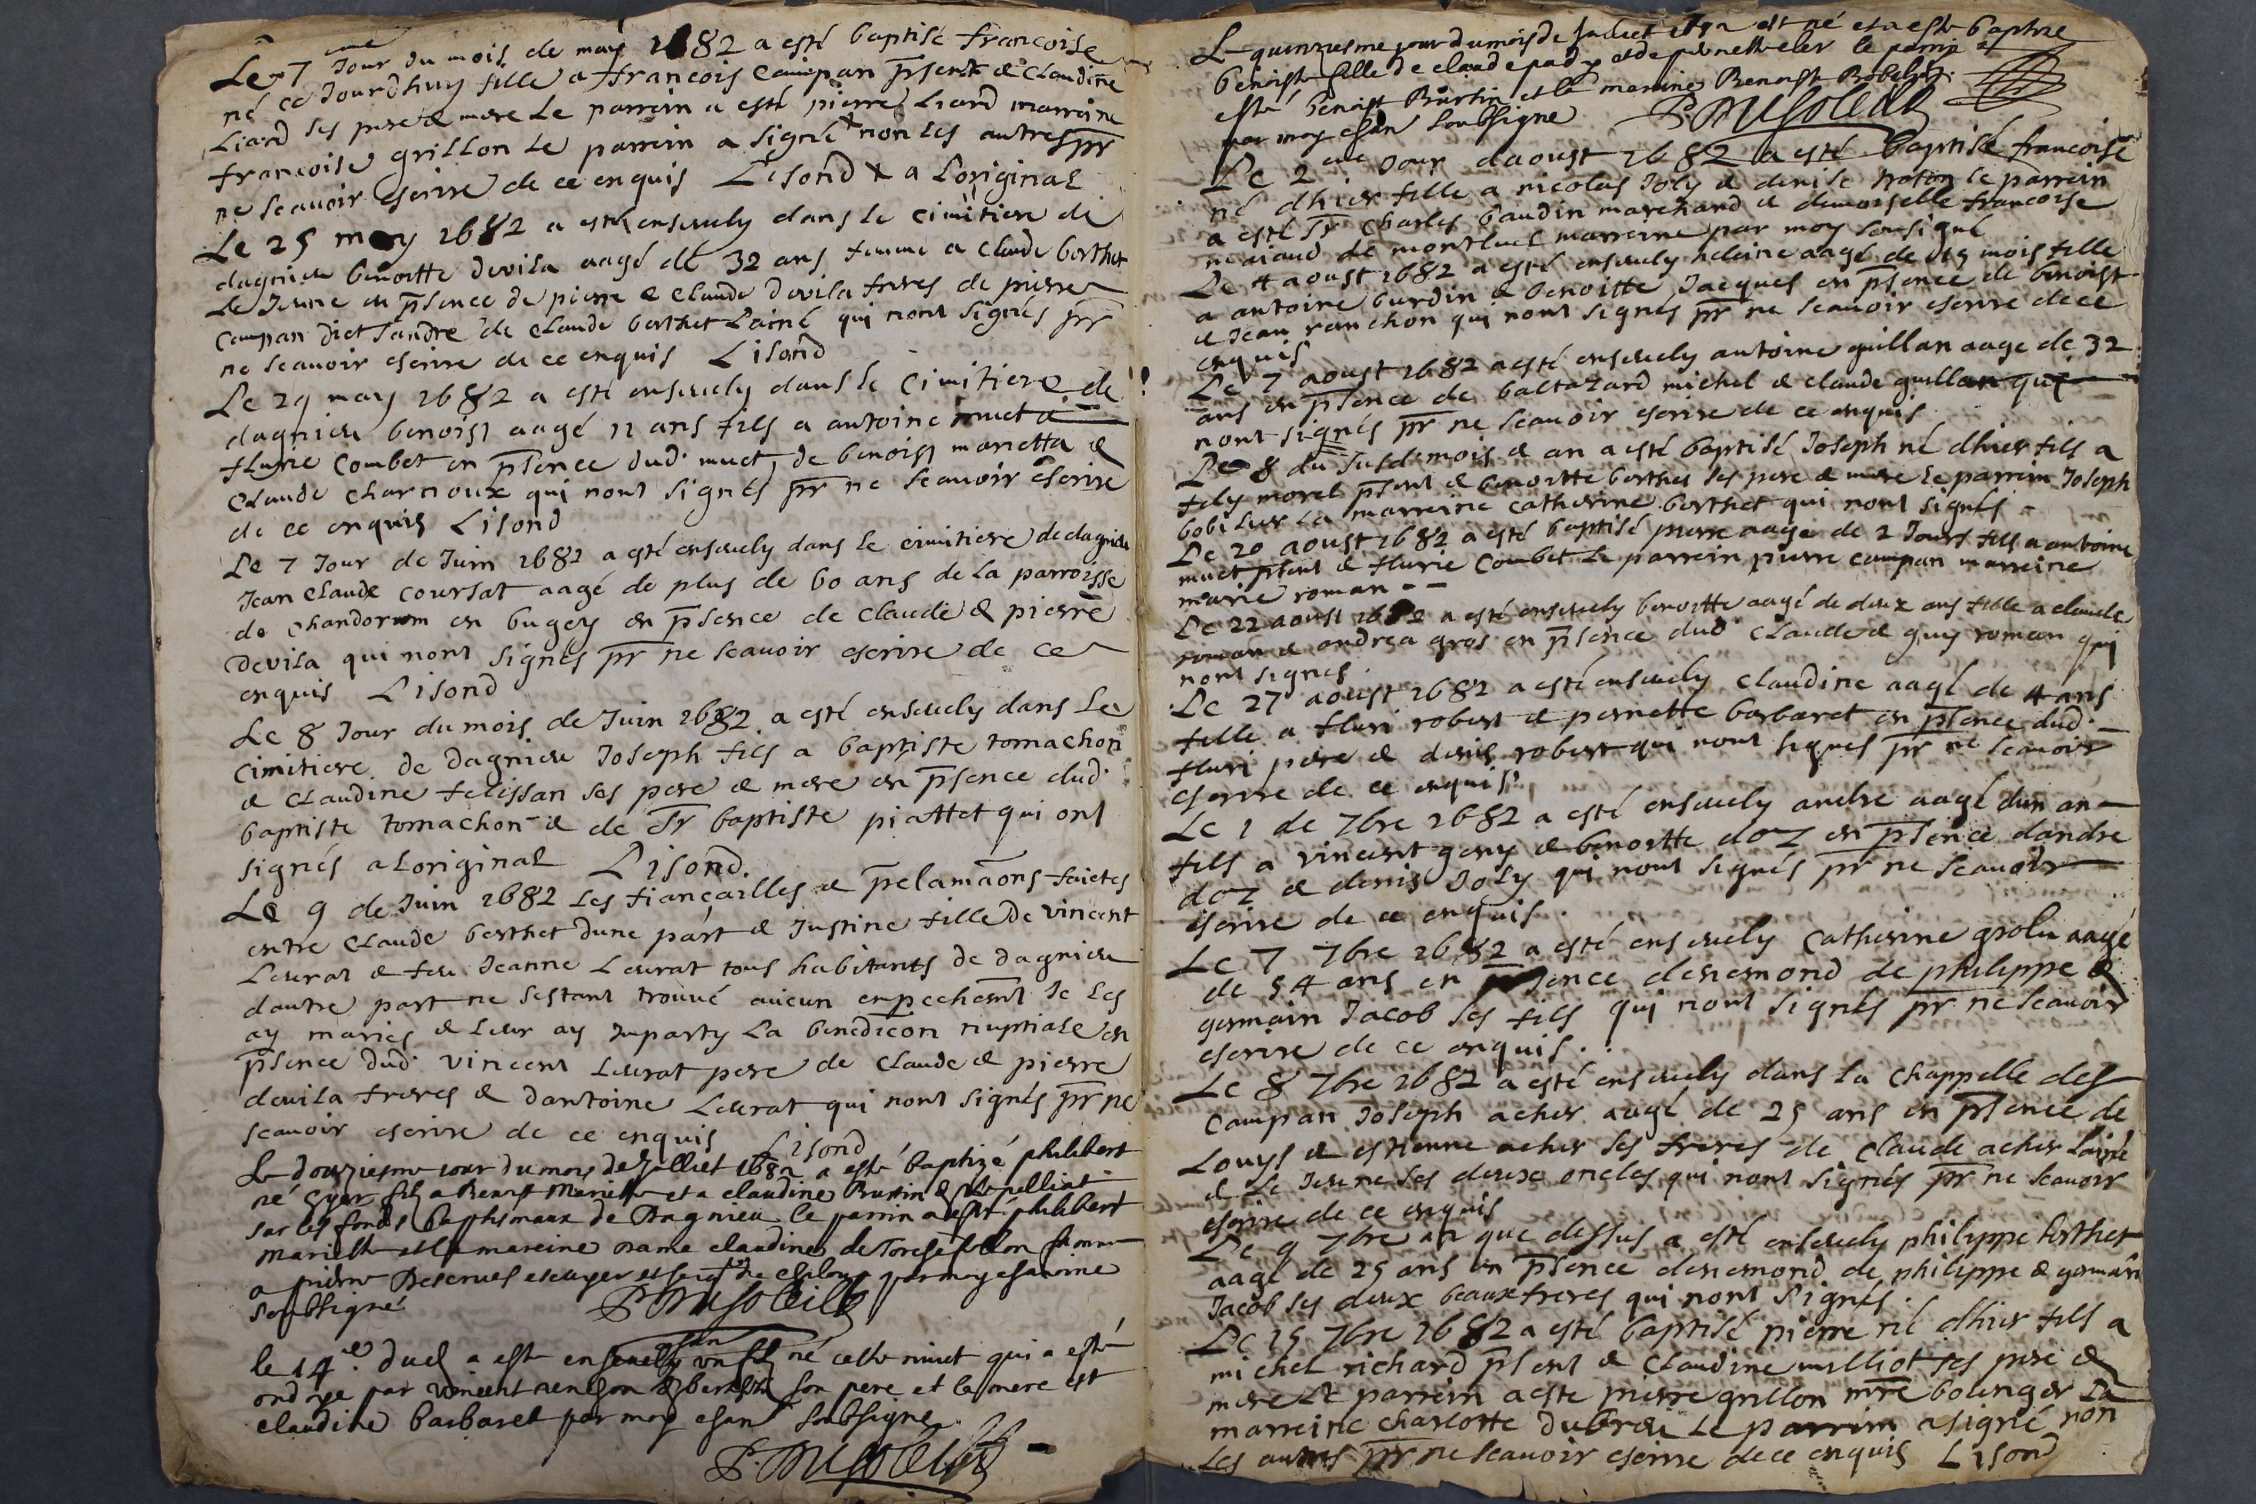 Le 7 Jour du mois de may 1682 a esté baptisé francoise
né ce Jourdhuy fille a francois Campan pñt & Claudine
Liard ses pere & mere Le parrein a esté pierre Liard marreine
francoise grillon Le parrein a signé non les autres pr
ne scauoir escrire de ce enquis Lisond & a L'original
Le 25 may 1682 a esté enseuely dans le cimitiere de
dagnieu benoitte Devila aagé de 32 ans femme a Claude berthet
Le Jeune en psence de pierre & Claude Devila freres de pierre
Campan dict Sandre de Claude berthet L'ainé qui nont signés pr
ne scauoir escrire de ce enquis Lisond
Le 29 may 1682 a esté enseuely dans le Cimitiere de
dagnieu benoist aagé 11 ans fils a antoine muet &
flurie Combet en psence dud. muet, de benoist marietta &
Claude Charnoux qui nont signés pr ne scauoir escrire
de ce enquis Lisond
Le 7 Jour de Juin 1682 a esté enseuely dans le cimitiere de dagnieu
Jean Claude Coursat aagé de plus de 60 ans de la parroisse
de Chandorum en bugey en psence de Claude & pierre
Devila qui nont signés pr ne scauoir escrire de ce
enquis Lisond
Le 8 Jour du mois de Juin 1682 a esté enseuely dans Le
Cimitiere de dagnieu Joseph fils a baptiste tomachon
& Claudine felissan ses pere & mere en psence dud.
baptiste tomachon & de Sr baptiste piattet qui ont
signés a Loriginal Lisond.
Le 9 de Juin 1682 Les fiançailles & pclamaōns faictes
entre Claude berthet dune part & Justine fille De vincent
Leurat & feu Jeanne Leurat tous habitants de dagnieu
dautre part ne sestant trouué aucun enpechemt Je Les
ay mariés & Leur ay Inparty La benedicōn nuptiale en
psence dud. vincent Leurat pere de Claude & pierre
devila freres & dantoine Leurat qui nont signés pr ne
scauoir escrire de ce enquis Lisond
Le douziesme iour du mois de Juilliet 1682 a esté baptizé philibert
né hyer filz a Benoist Mariette et a claudine Burtin
sur les fonds baptismaux de Dagnieu le parrin a esté philibert
Mariette et la mareine dame claudine de
a pierre escuyer par moy chanoine
soubsigné
le 14e dud a este enseuely un filz né cette nuict qui a esté
ondoyé par vincent son pere et la mere est
claudine barbaret par moy chan soubsigne
L quinziesme jour du mois de Juilliet 1682 est né et a esté baptizé
benoiste fille de claude pady et de pernette le parrin a
esté benoist Burtin et la marine Benoiste
par moy chan soubsigne
Le 2me Jour daoust 1682 a esté baptisé francoise
né dhier fille a nicolas Joly & denise Le parrein
a esté Sr Charles baudin marchand & demoiselle francoise
de montluel marreine par moy sousigné
Le 4 aoust 1682 a esté enseuely helaine aagé de 15 mois fille
a antoine burdin & benoitte Jacques en psence de benoist
& Jean ranchon qui nont signés pr ne scauoir escrire de ce
enquis
Le 7 aoust 1682 a esté enseuely antoine guillan aagé de 32
ans en psence de baltazard michel & claude guillan qui
nont signés pr ne scauoir escrire de ce enquis
Le 8 du susd. mois & an a esté baptisé Joseph né dhier fils a
fely morel psent & benoitte berthet ses pere & mere Le parrein Joseph
La marreine catherine berthet qui nont signés
Le 20 aoust 1682 a esté baptisé pierre aagé de 2 Jours fils a antoine
muet psent & flurie Combet Le parrein pierre campan marreine
marie roman
Le 22 aoust 1682 a esté enseuely benoitte aagé de deux ans fille a claude
roman & andrea gros en psence dud. Claude & guy roman qui
nont signés.
Le 27 aoust 1682 a esté enseuely claudine aagé de 4 ans
fille a fluri robert & pernette barbaret en psence dud.
fluri pere & denis robert qui nont signés pr ne scauoir
escrire de ce enquis
Le 1 de 7bre 1682 a esté enseuely andre aagé dun an
fils a vincent geny & benoitte doz en psence dandre
doz & denis Joly qui nont signés pr ne scauoir
escrire de ce enquis.
Le 7 7bre 1682 a esté enseuely Catherine aagé
de 54 ans en psence desnemond de philippe &
germain Jacob ses fils qui nont signés pr ne scauoir
escrire de ce enquis.
Le 8 7bre 1682 a esté enseuely dans la Chappelle des
Campan Joseph acher aagé de 25 ans en psence de
Louys & estienne acher ses freres de Claude acher L'ainé
& Le Jeune ses deux oncles qui nont signés pr ne scauoir
escrire de ce enquis
Le 9 7bre an que dessus a esté enseuely philippe berthet
aagé de 25 ans en psence desnemond de philippe & germain
Jacob ses deux beauxfreres qui nont signés.
Le 15 7bre 1682 a esté baptisé pierre né dhier fils a
michel richard psent & Claudine milliot ses pere &
mere Le parrein a esté pierre grillon mre bolenger La
marreine charlotte dubreu Le parrein a signé non
Les autres pr ne scauoir escrire de ce enquis Lisond